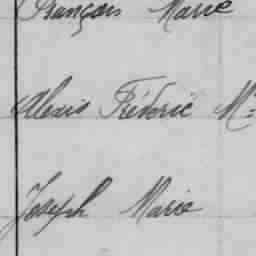 François Marie
Alexis Fréderic M
Joseph Marie